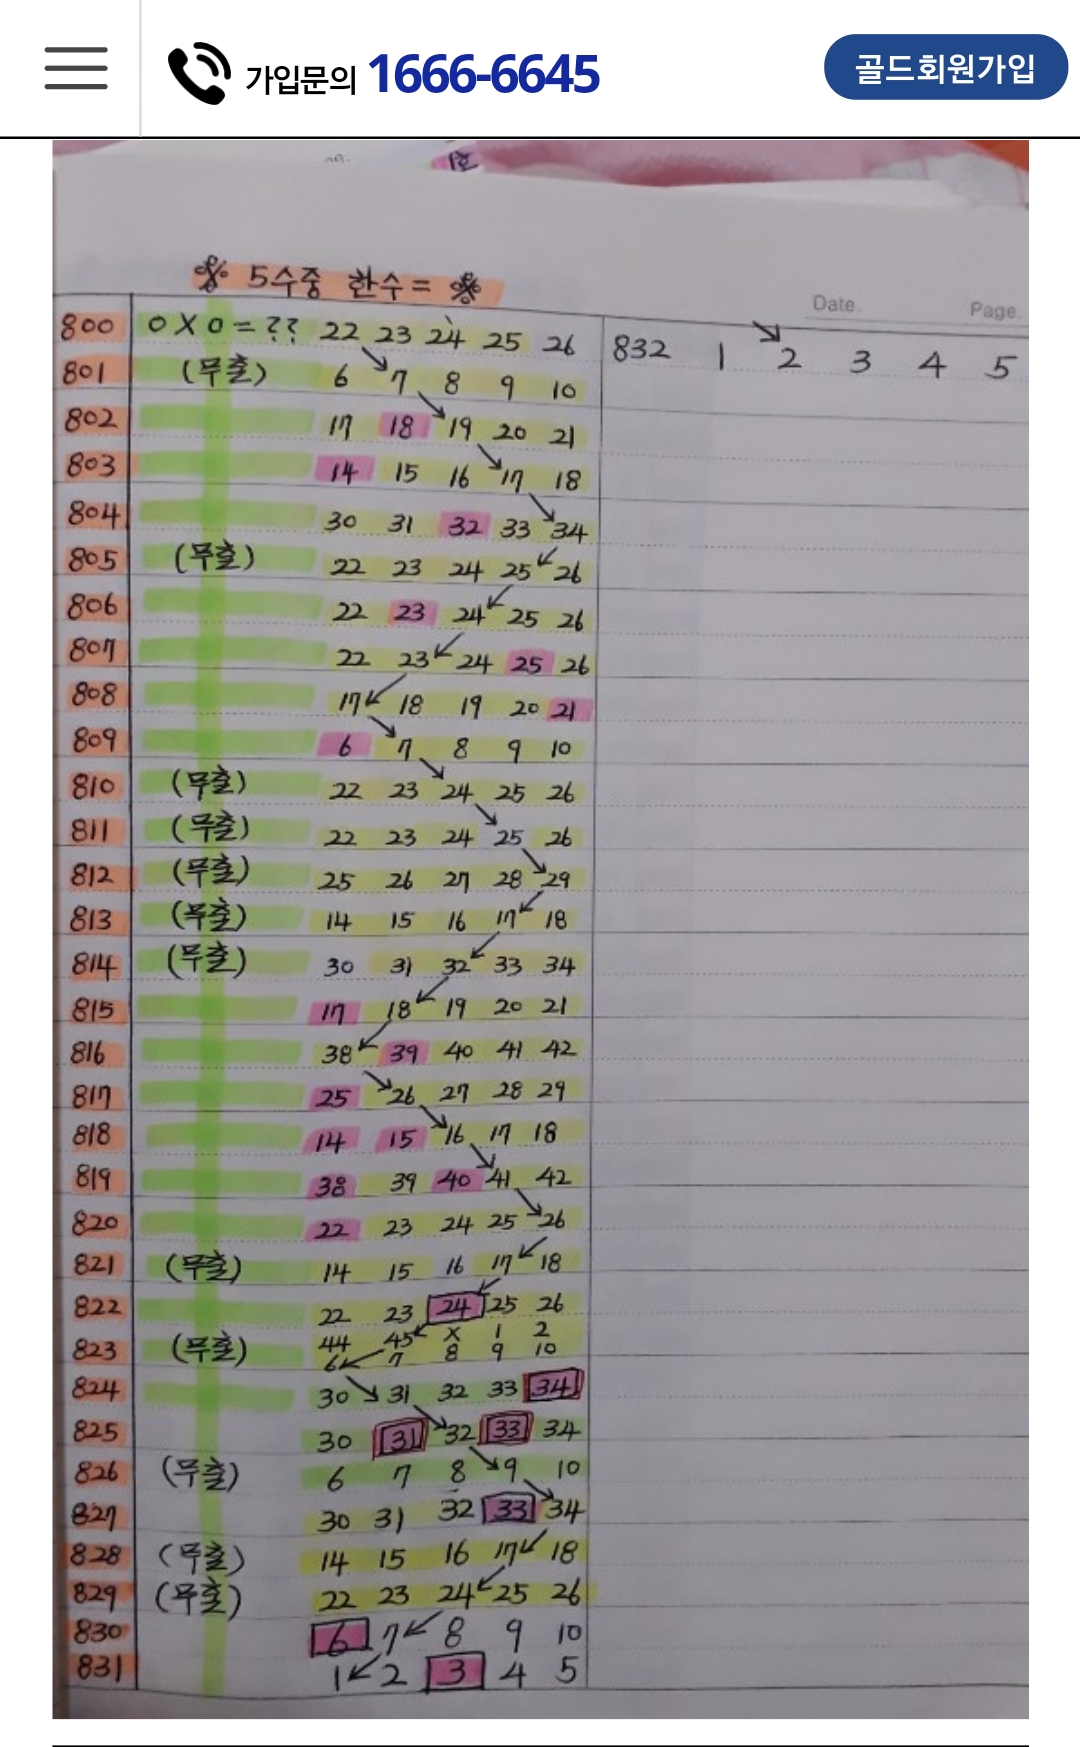 가입문의 1666-6645
골드회원가입
※ 5수중 한수= ※
Date. Page.
800 0X0=?? 22 23 24 25 26
832 1 2 3 4 5
801 (무출) 6 7 8 9 10
802 17 18 19 20 21
803 14 15 16 17 18
804 30 31 32 33 34
805 (무출) 22 23 24 25 26
806 22 23 24 25 26
807 22 23 24 25 26
808 17 18 19 20 21
809 6 7 8 9 10
810 (무출) 22 23 24 25 26
811 (무출) 22 23 24 25 26
812 (무출) 25 26 27 28 29
813 (무출) 14 15 16 17 18
814 (무출) 30 31 32 33 34
815 17 18 19 20 21
816 38 39 40 41 42
817 25 26 27 28 29
818 14 15 16 17 18
819 38 39 40 41 42
820 22 23 24 25 26
821 (무출) 14 15 16 17 18
822 22 23 24 25 26
823 (무출) 44 45 X 1 2
6 7 8 9 10
824 30 31 32 33 34
825 30 31 32 33 34
826 (무출) 6 7 8 9 10
827 30 31 32 33 34
828 (무출) 14 15 16 17 18
829 (무출) 22 23 24 25 26
830 6 7 8 9 10
831 1 2 3 4 5